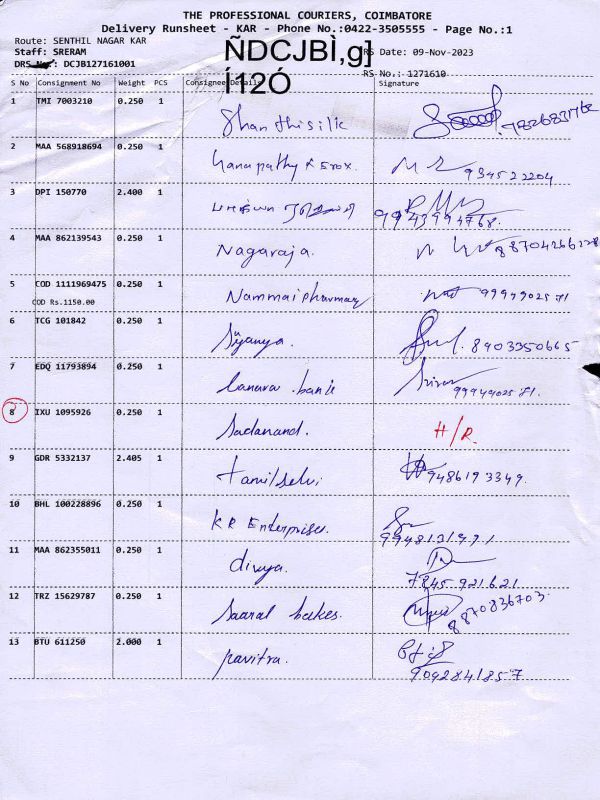 THE PROFESSIONAL COURIERS, COIMBATORE
Delivery Runsheet - KAR - Phone No.:0422-3505555 - Page No.:1
Route: SENTHIL NAGAR KAR
Staff: SRERAM
RS Date: 09-Nov-2023
DRS No.: DCJB127161001
ÑDCJBÌ,g]
Í12Ó
RS No.: 1271610
S No Consignment No Weight PCS Consignee Details Signature
1 TMI 7003210 0.250 1 Shanthisilk
2 MAA 568918694 0.250 1 Ganapathy Xerox. 934522204
3 DPI 150770 2.400 1 9943994768.
4 MAA 862139543 0.250 1 Nagaraja.
5 COD 1111969475 0.250 1 Nammai pharmacy 9994902571
COD Rs.1150.00
6 TCG 101842 0.250 1 8903350665
7 EDQ 11793894 0.250 1 Canara bank 9994902581.
8 IXU 1095926 0.250 1 Sadanand. H/R
9 GDR 5332137 2.405 1 tamilselvi 9486193349.
10 BHL 100228896 0.250 1 KR Enterprises.
11 MAA 862355011 0.250 1 divya. 7845921621
12 TRZ 15629787 0.250 1 Saaral bakes. 8870836703
13 BTU 611250 2.000 1 pavitra. 9092841857